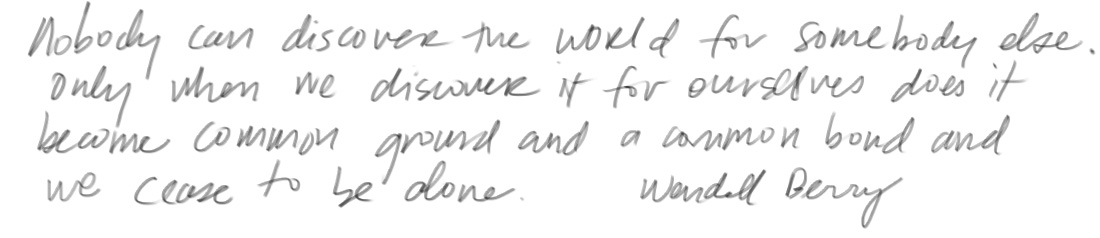 Nobody can discover the world for somebody else.
Only when we discover it for ourselves does it
become common ground and a common bond and
we cease to be alone. Wendell Berry